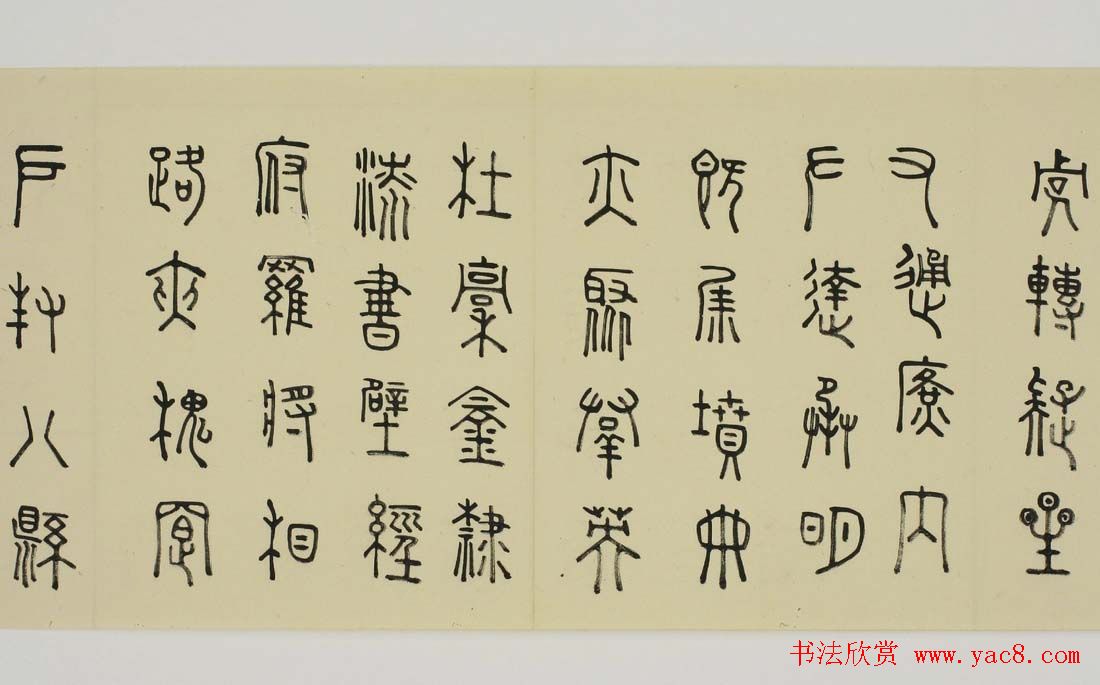 弁轉疑星
右通廣內
左達承明
既集墳典
亦聚羣英
杜稾鍾隸
漆書壁經
府羅將相
路夾槐卿
戶封八縣
书法欣赏 www.yac8.com